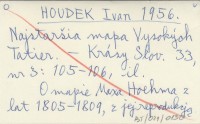 HOUDEK Ivan 1956.
Najstaršia mapa Vysokých
Tatier. – Krásy Slov. 33,
nr 3: 105-106, il.
O mapie Maxa Hochma z
lat 1805-1809, z jej reprodukcją